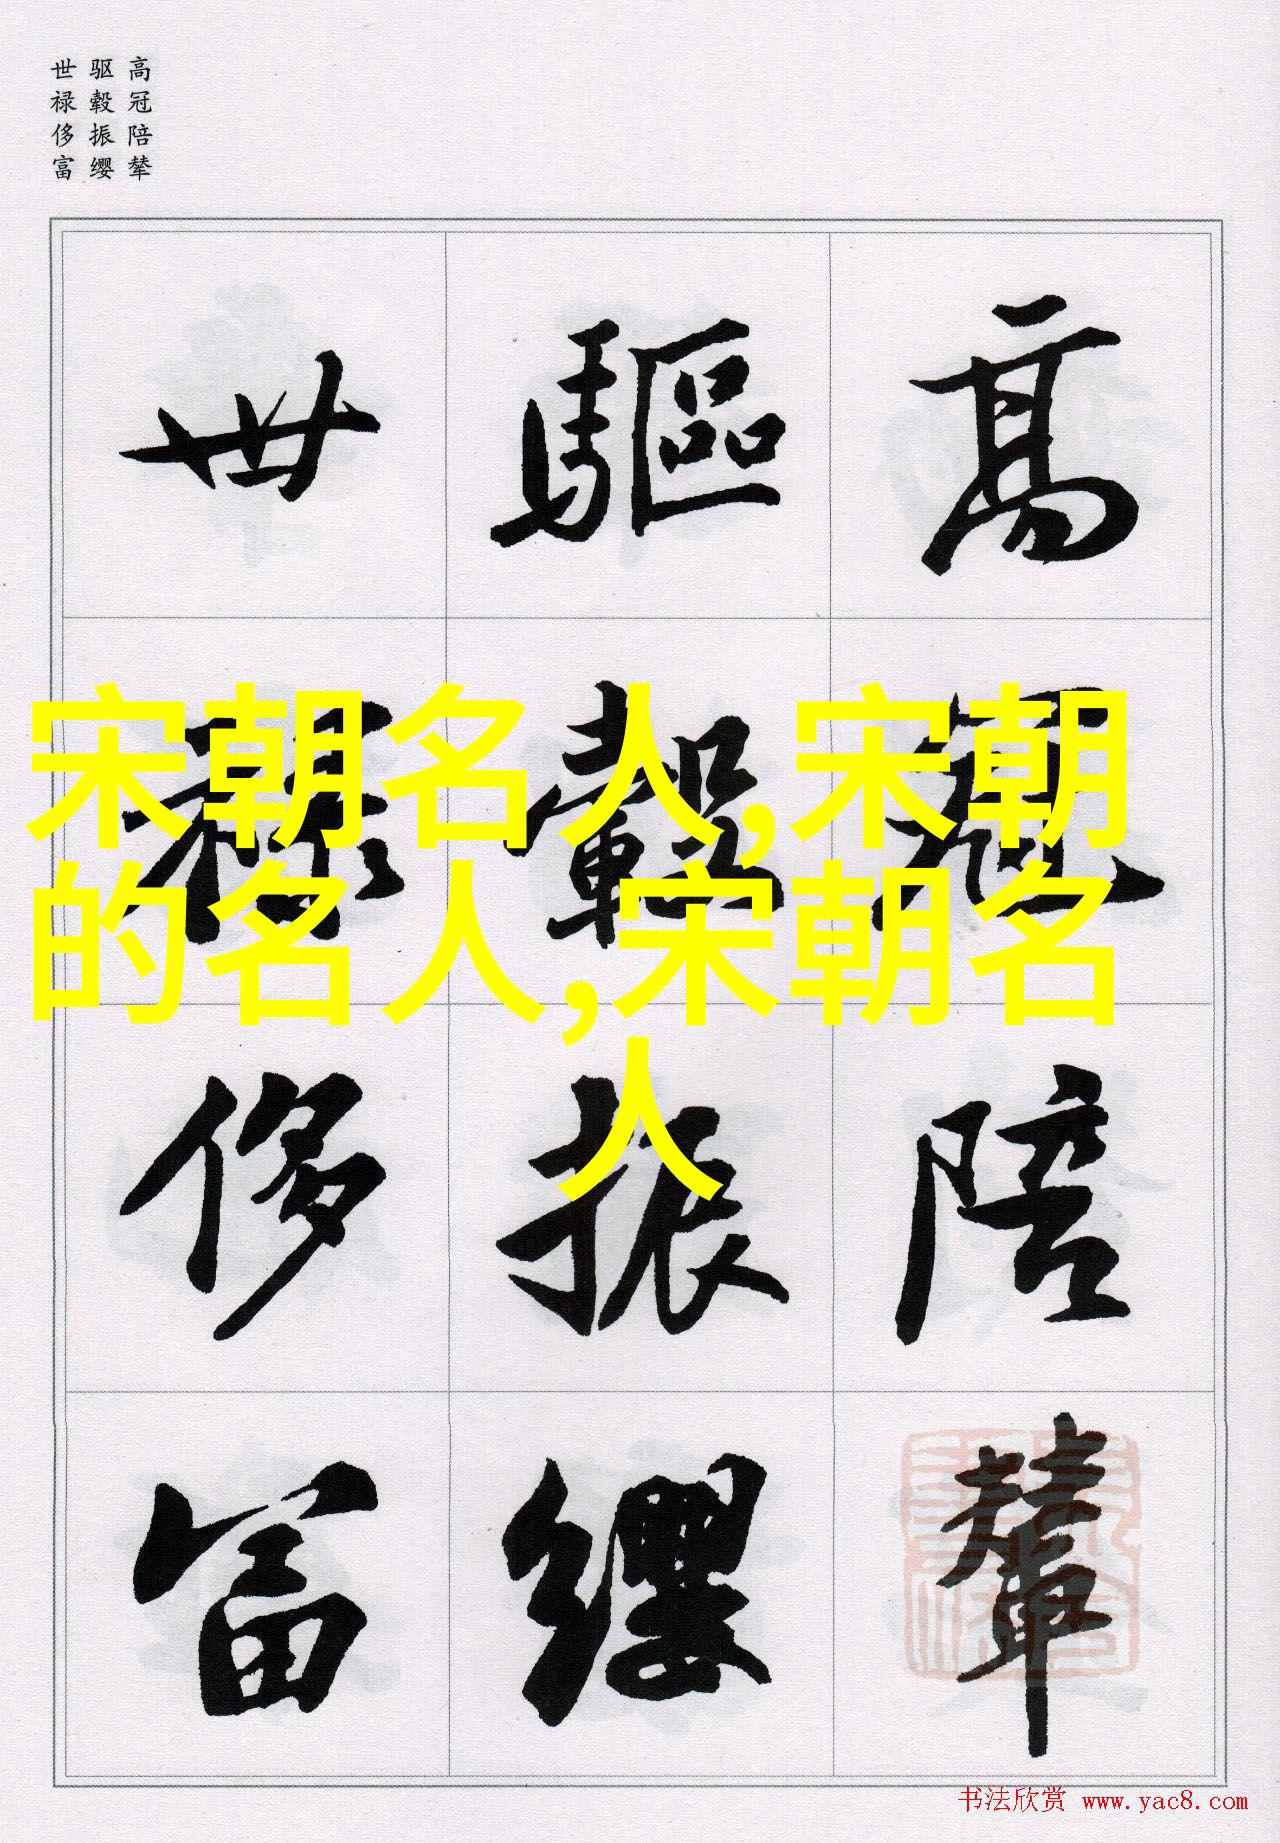 高冠陪辇
驱毂振缨
世禄侈富
高冠陪輦
驅轂振纓
世禄侈富
宋朝名人,宋朝
的名人,宋朝名
人
书法欣赏 www.yac8.com